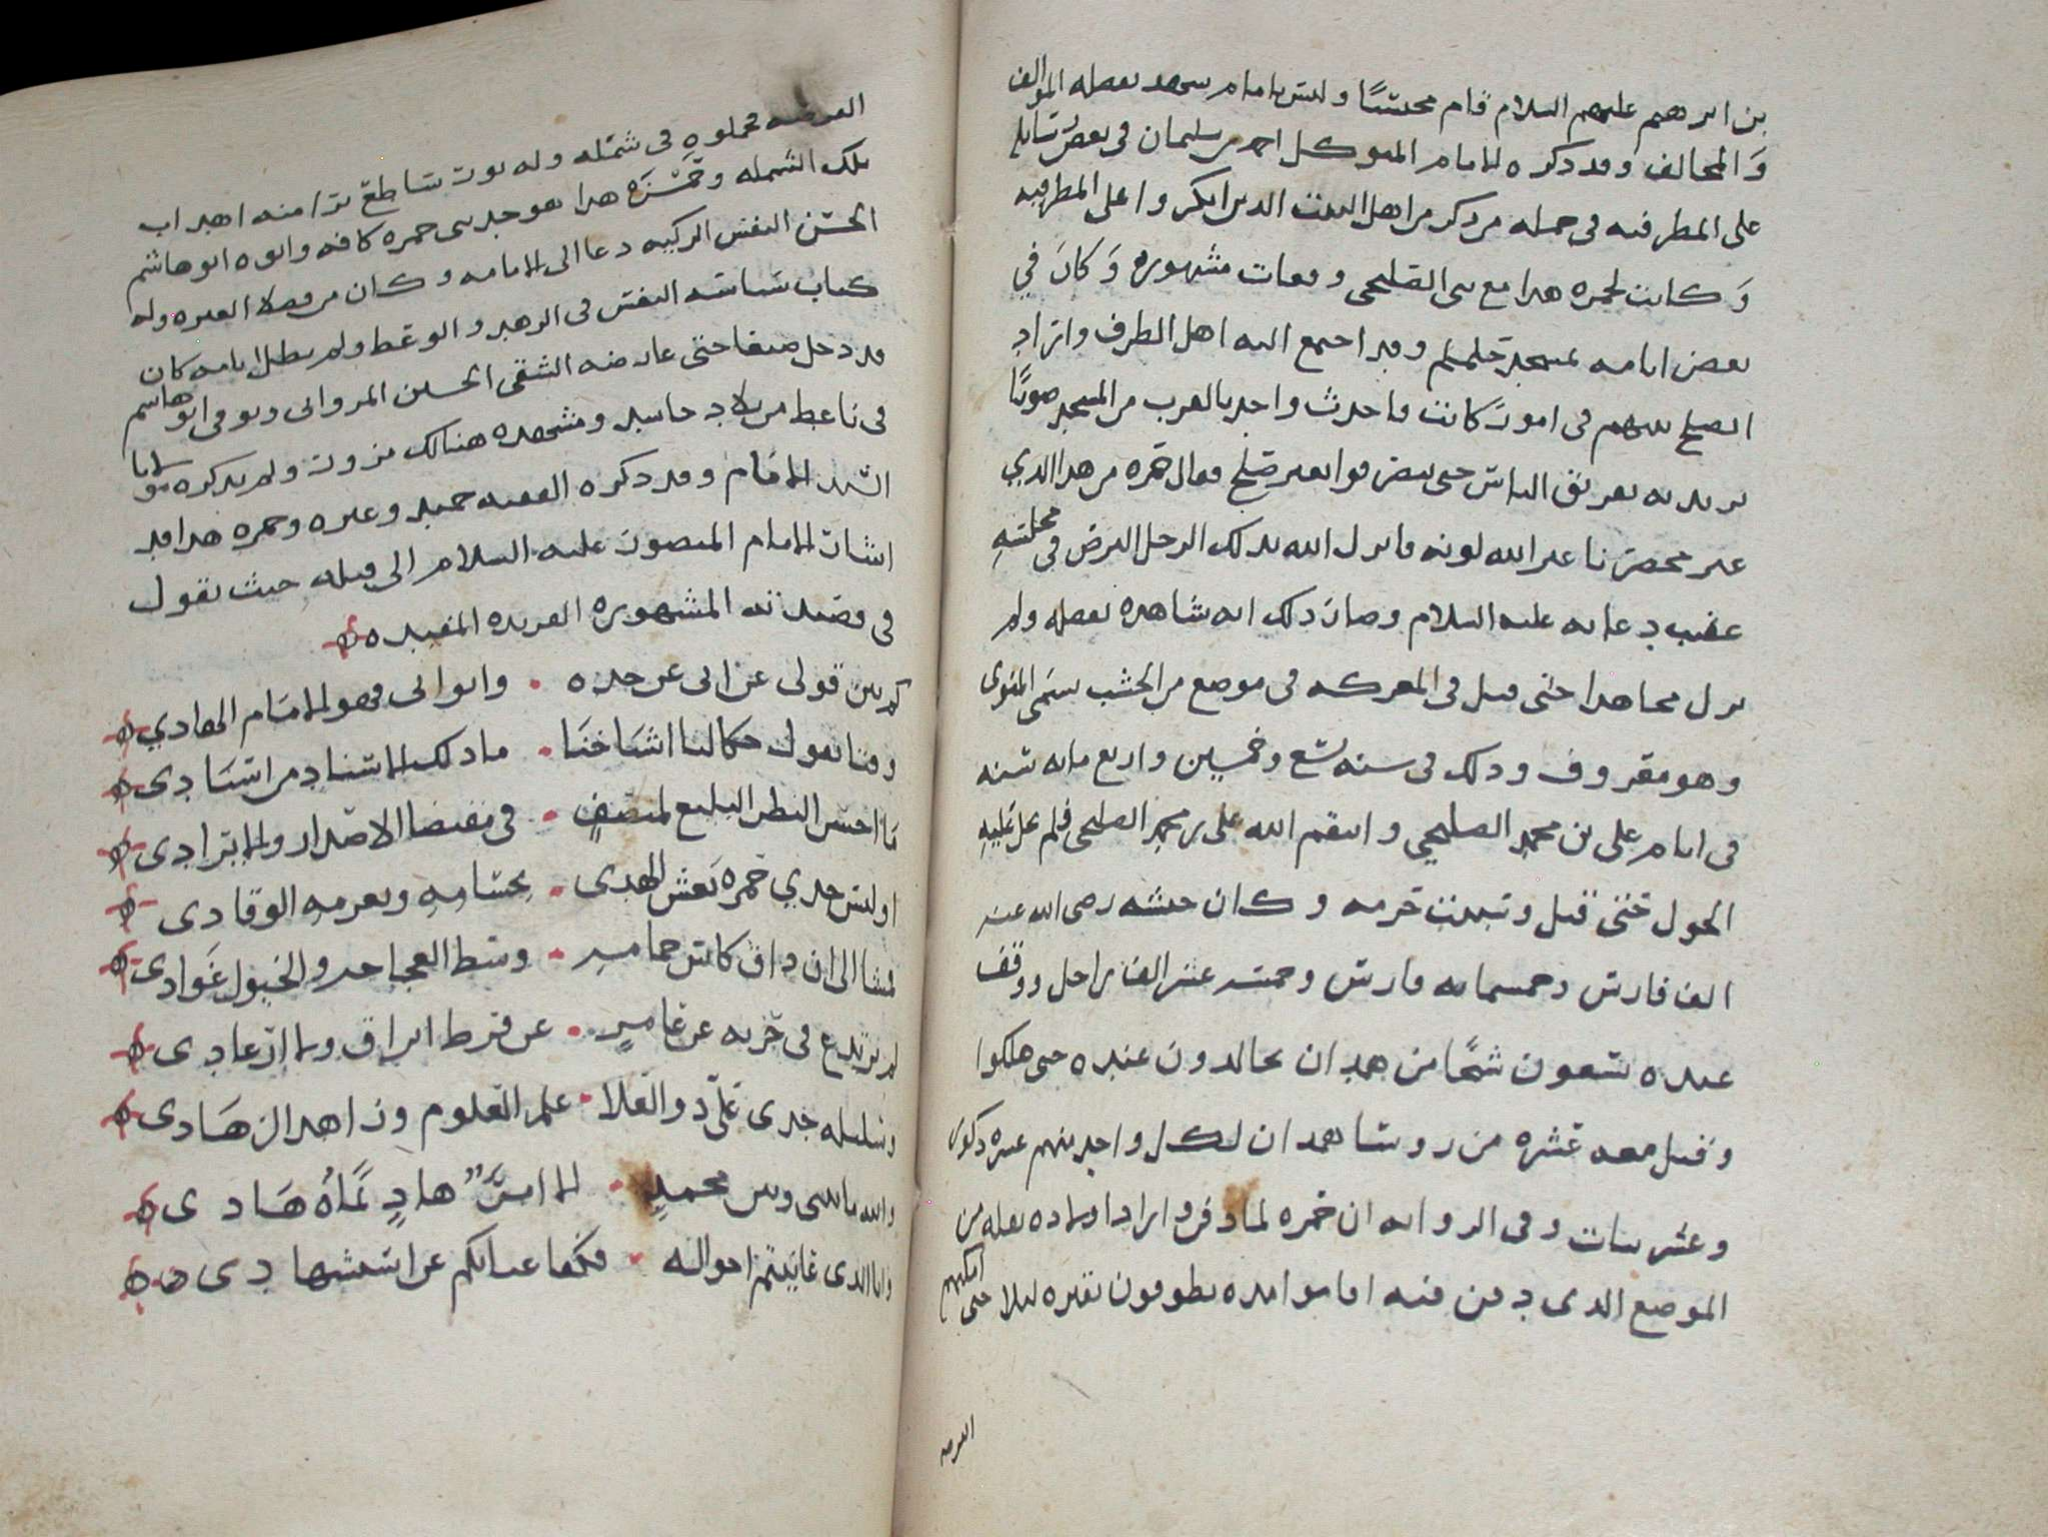 بن ابرهيم عليهم السلام قام محتسبًا وليس بامام سهد بفضله المؤالف
وَالمخالف وقد ذكره الامام المتوكل احمد بن سليمان في بعض رسايله
على المطرفيه في جمله من ذكر من اهل البيت الذين انكروا على المطرفيه
وَكانت لحمزه هذا مع بني الصليحي وقعات مشهوره وَكان في
بعض ايامه بمسجد حلملم وقد اجتمع اليه اهل الطرف واراد
الصلح بينهم في امور كانت فاحدث واحد بالقرب من المسجد صوتًا
يريد به تفريق الناس حتى ينفضوا بغير صلح فقال حمزه من هذا الذي
غير محضرنا غير الله لونه فانزل الله بذلك الرجل البرص في مجلسه
عقيب دعائه عليه السلام وصار ذلك ايه شاهده بفضله ولم
يزل مجاهدا حتى قتل في المعركه في موضع من الخشب يسمى المنوى
وهو معروف وذلك في سنه تسع وخمسين واربع مائه سنه
في ايام علي بن محمد الصليحي وانتقم الله على بن محمد الصليحي فلم يحل عليه
الحول حتى قتل وسبيت حرمه وكان جيشه رضي الله عنه
الف فارس وخمسمائه فارس وخمسه عشر الف راجل ووقف
عنده سبعون شيخًا من همدان يجالدون عنده حتى هلكوا
وقتل معه عشره من روسا همدان لكل واحد منهم عشره ذكور
وعشر بنات وفي الروايه ان حمزه لما دفن وارادا ولاده نقله من
الموضع الذي دفن فيه اقاموا مده يطوفون بقبره ليلا حتى امكنهم
الفرصه
الفرصه فحملوه في شمله وله نور ساطع ترا منه اهداب
تلك الشمله وحَمْزَه هذا هو جد بني حمزه كافه وابوه ابو هاشم
الحسن النفس الزكيه دعا الى الامامه وكان من فضلا العتره وله
كتاب سياسه النفس في الزهد والوعظ ولم تطل ايامه كان
قد دخل صنعا حتى عارضه الشقي الحسين المرواني وتوفي ابو هاشم
في ناعط من بلاد حاشد ومشهده هنالك مزور ولم يذكره مولانا
السيد الامام وقد ذكره الفقيه حميد وغيره وحمزه هذا قد
اشار الامام المنصور عليه السلام الى قتله حيث يقول
في قصيدته المشهوره الفريده المفيده
كم بين قولي عن ابي عن جده • وابو ابي فهو الامام الهادي
وفتا يقول حكا لنا اشياخنا • ما ذلك الاسناد من اسنادي
مَا احسن النظر البليغ لمنصفٍ • في مقتضا الاصدار والايرادي
اوليس جدي حمزه نعش الهدى • بحسامهِ وبعزمهِ الوقادي
فمشا الى ان ذاق كاس حمامهِ • وسط العجاجه والخيول غَوادي
لم يرتدع في حزبه عن غامدٍ • عن فرط ابراق ولا ارعادي
وسليله جدي عَليّ ذو العُلا • علم العلوم وزاهد الزهادي
والله ما بيني وبين محمدٍ • الا امرؤ هادٍ نماهُ هَادي
وانا الذي عاينتم احواله • فكفا عيانكم عن استشهادي